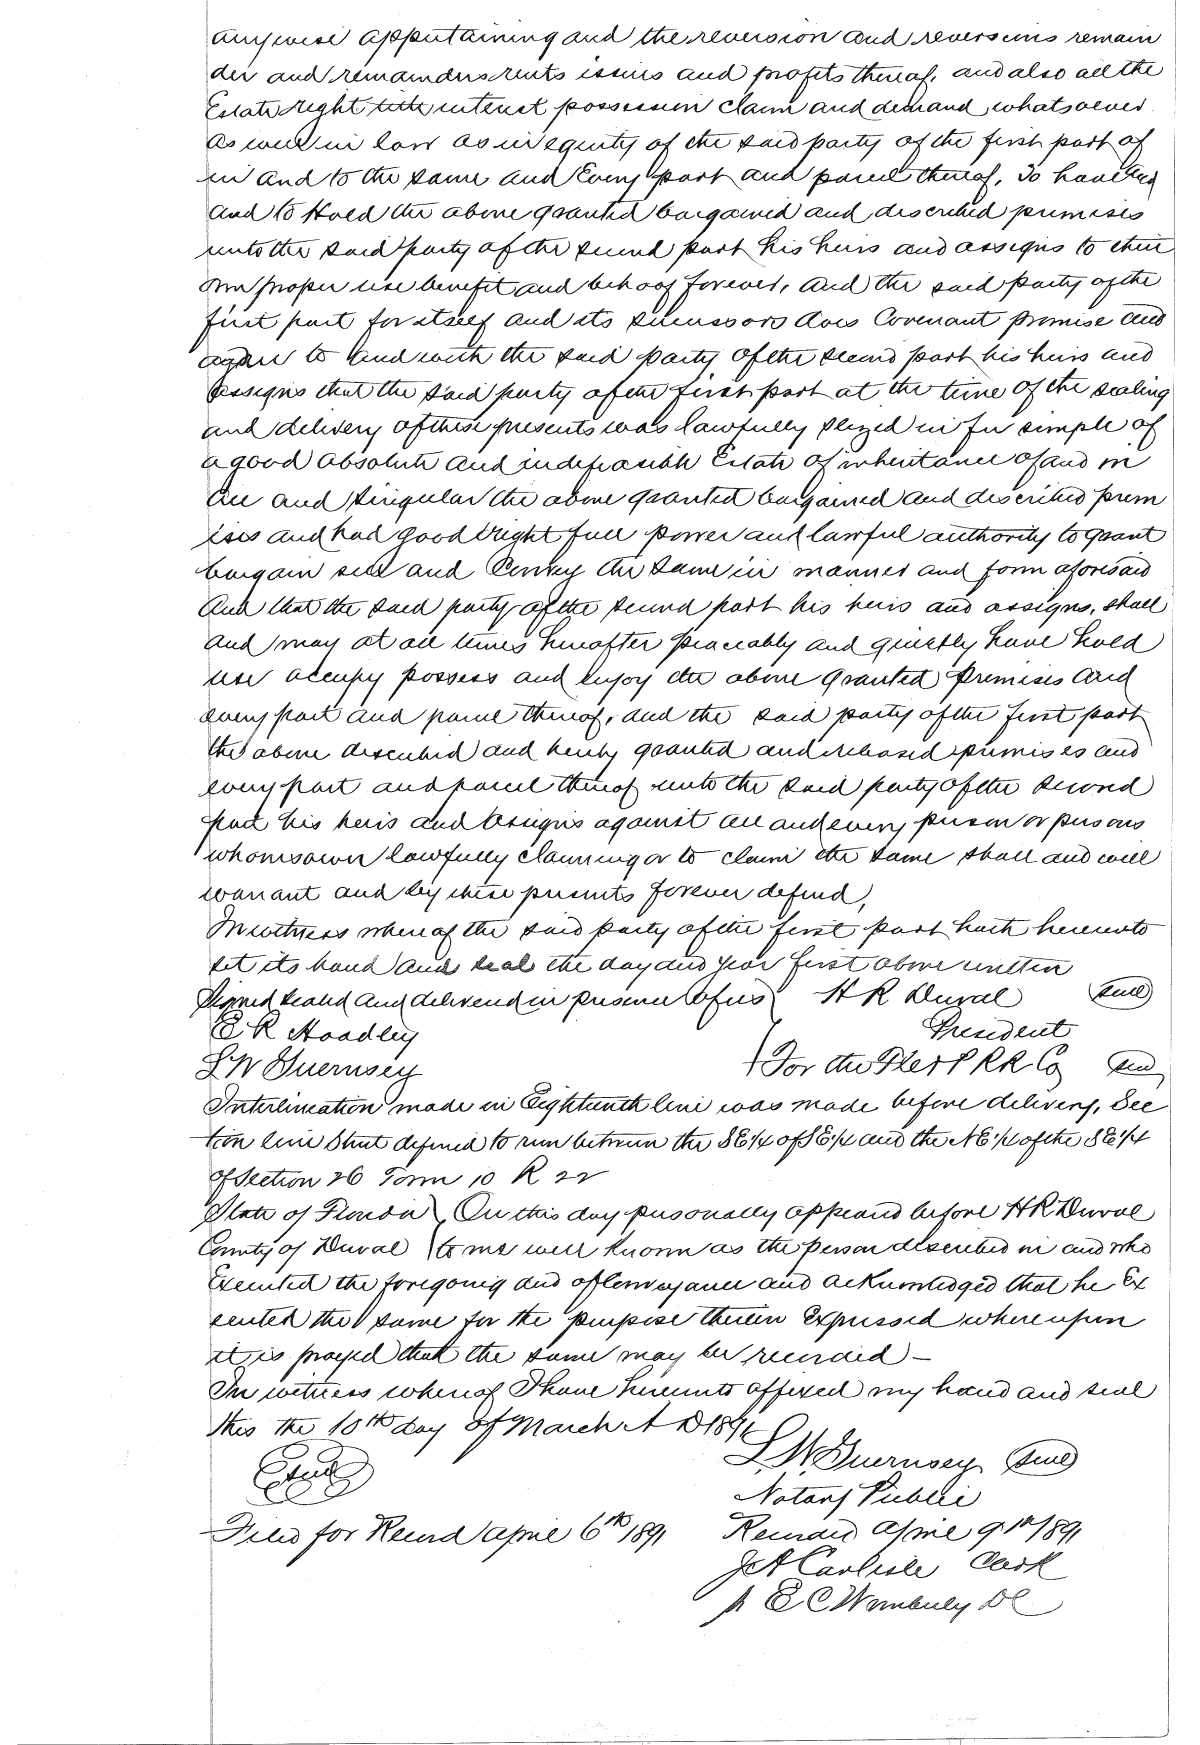 anywise appurtaining and the reversion and reversions remain
der and remainders rents issues and profits thereof, and also all the
Estate right title interest possession claim and demand whatsoever
as well in law as in equity of the said party of the first part of
in and to the same and Every part and parcel thereof, To have
and to Hold the above granted bargained and described premises
unto the said party of the second part his heirs and assigns to their
own proper use benefit and behoof forever, and the said party of the
first part for itself and its successors does Covenant promise and
agree to and with the said party of the second part his heirs and
assigns that the said party of the first part at the time of the sealing
and delivery of these presents was lawfully seized in fee simple of
a good absolute and indefeasible Estate of inheritance of and in
all and singular the above granted bargained and described prem
ises and had good right full power and lawful authority to grant
bargain sell and Convey the same in manner and form aforesaid
And that the said party of the second part his heirs and assigns, shall
and may at all times hereafter peaceably and quietly have hold
use occupy possess and enjoy the above granted Premises and
every part and parcel thereof, and the said party of the first part
the above described and hereby granted and released premises and
every part and parcel thereof unto the said party of the second
part his heirs and assigns against all and every person or persons
whomsoever lawfully claiming or to claim the same shall and will
warrant and by these presents forever defend,
In witness whereof the said party of the first part hath hereunto
set its hand and seal the day and year first above written
Signed sealed and delivered in presence of us } H R Duval (Seal)
E R Hoadley President
S W Guernsey } For the Fla R R Co (Seal)
Interlineation made in Eighteenth line was made before delivery, Sec
tion line Strut defined to run between the SE1/4 of SE1/4 and the NE1/4 of the SE1/4
of Section 26 Town 10 R 22
State of Florida } On this day personally appeared before H R Duval
County of Duval } to me well known as the person described in and who
Executed the foregoing deed of Conveyance and acknowledged that he Ex
ecuted the same for the purpose therein Expressed whereupon
it is prayed that the same may be recorded —
In witness whereof I have hereunto affixed my hand and seal
this the 10th day of March A D 1891
(Seal) S. W. Guernsey (Seal)
Notary Public
Filed for Record April 6th 1891 Recorded April 9th 1891
J A Carlisle Clerk
p E C Wimberly DC